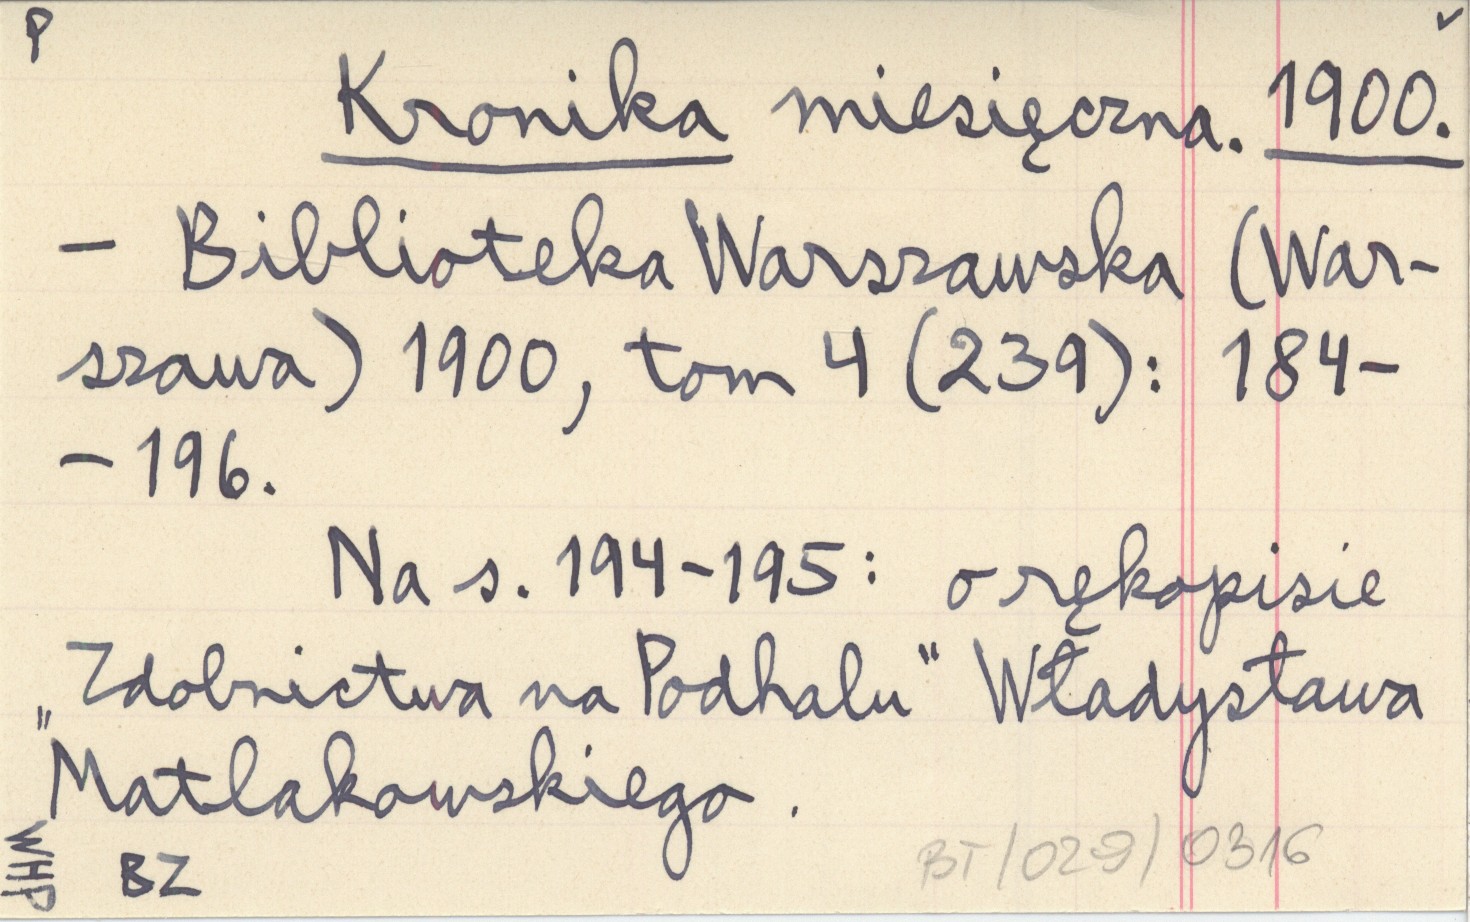 P ✓
Kronika miesięczna. 1900.
– Biblioteka Warszawska (War-
szawa) 1900, tom 4 (239): 184-
-196.
Na s. 194-195: o rękopisie
„Zdobnictwa na Podhalu" Władysława
Matlakowskiego.
WHP BZ
BT/029/0316